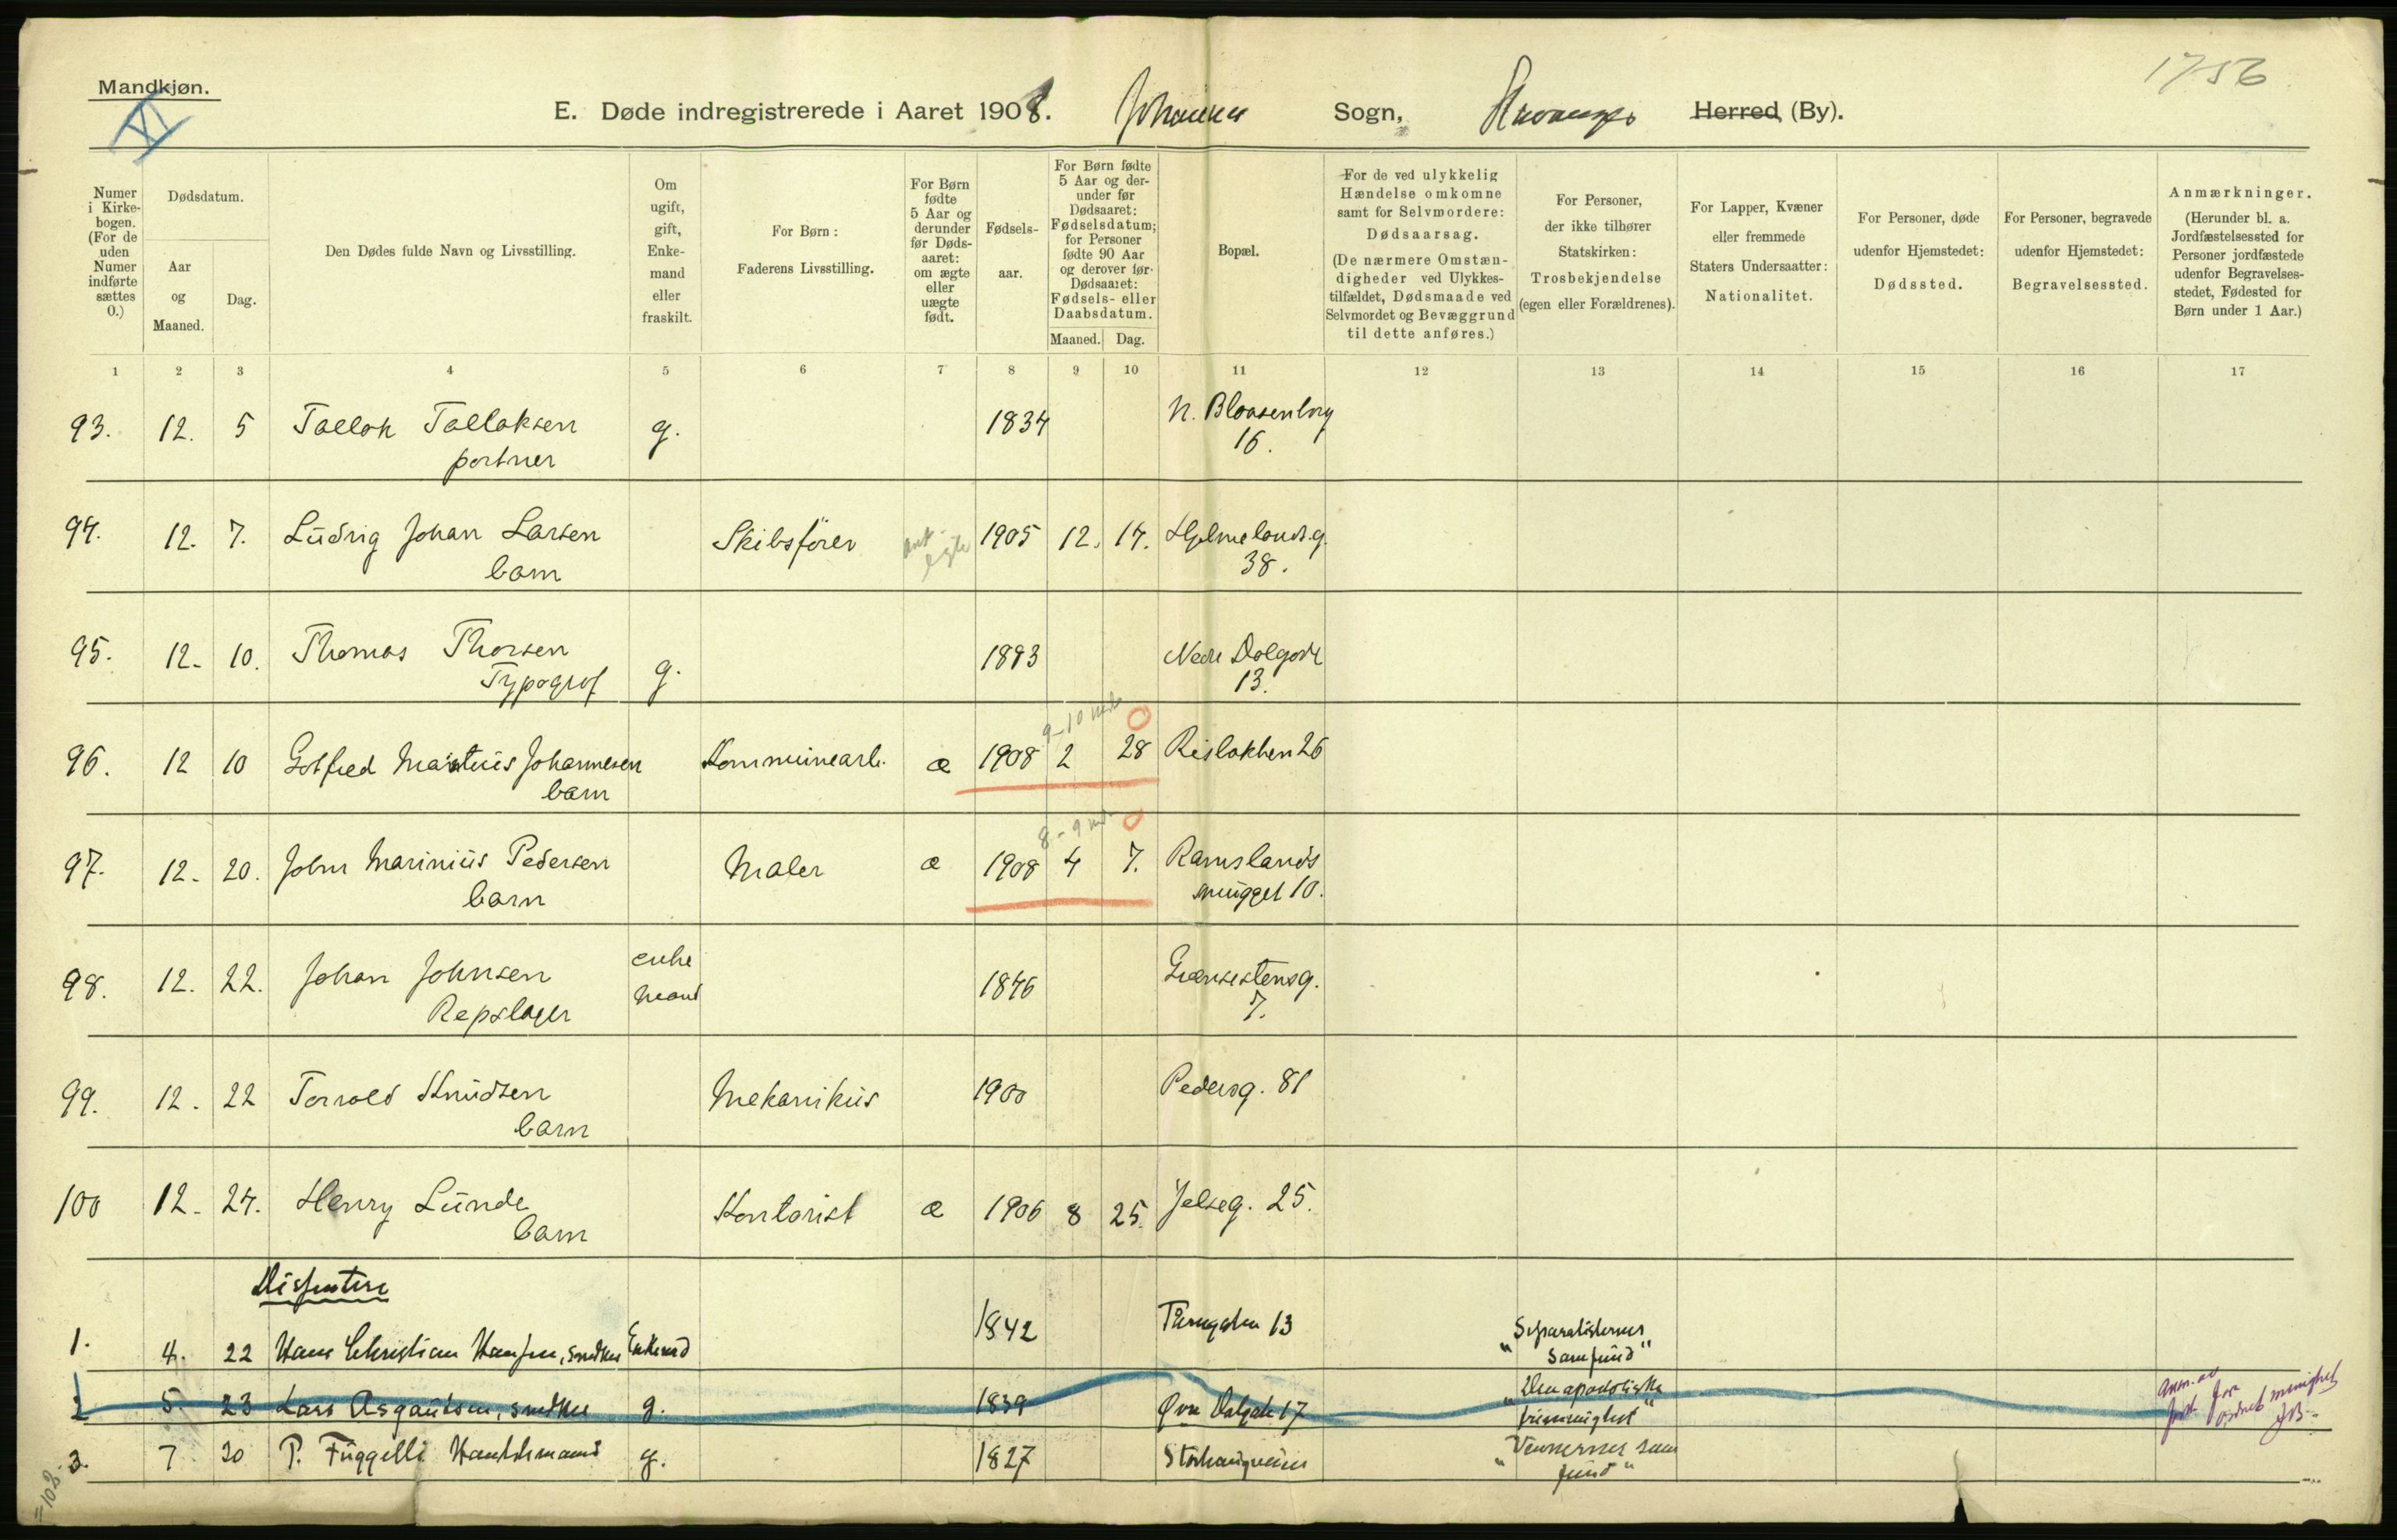 Mandkjøn.
XI
1756
E. Døde indregistrerede i Aaret 1908. Johannes Sogn, Stavanger Herred (By).
Numer i Kirkebogen. (For de uden Numer indførte sættes 0.)
Dødsdatum.
Aar og Maaned.
Dag.
Den Dødes fulde Navn og Livsstilling.
Om ugift, gift, Enkemand eller fraskilt.
For Børn: Faderens Livsstilling.
For Børn fødte 5 Aar og derunder før Dødsaaret: om ægte eller uægte født.
Fødselsaar.
For Børn fødte 5 Aar og derunder før Dødsaaret: Fødselsdatum; for Personer fødte 90 Aar og derover før Dødsaaret: Fødsels- eller Daabsdatum.
Maaned. Dag.
Bopæl.
For de ved ulykkelig Hændelse omkomne samt for Selvmordere: Dødsaarsag. (De nærmere Omstændigheder ved Ulykkestilfældet, Dødsmaade ved Selvmordet og Bevæggrund til dette anføres.)
For Personer, der ikke tilhører Statskirken: Trosbekjendelse (egen eller Forældrenes).
For Lapper, Kvæner eller fremmede Staters Undersaatter: Nationalitet.
For Personer, døde udenfor Hjemstedet: Dødssted.
For Personer, begravede udenfor Hjemstedet: Begravelsessted.
Anmærkninger. (Herunder bl. a. Jordfæstelsessted for Personer jordfæstede udenfor Begravelsesstedet, Fødested for Børn under 1 Aar.)
1 2 3 4 5 6 7 8 9 10 11 12 13 14 15 16 17
93. 12. 5 Tallak Tallaksen g. 1834 N. Blaasenborg
portner 16.
94. 12. 7. Ludvig Johan Larsen Skibsfører ant. egte 1905 12. 14. Hjelmelands.g.
barn 38.
95. 12. 10. Thomas Thorsen g. 1883 Nedre Dalgade
Typograf 13.
9-10 md
96. 12 10 Gotfred Martius Johannesen Kommunearb. æ 1908 2 28 Risbakken 26
barn
8-9 md.
97. 12. 20. John Marinius Pedersen Maler æ 1908 4 7. Ramslands
barn smugget 10.
98. 12. 22. Johan Johnsen enke 1846 Grænsestensg.
Repslager mand 7.
99. 12. 22 Torvald Knudsen Mekanikus 1900 Pedersg. 81
barn
100 12. 24. Henry Lunde Kontorist æ 1906 8 25. Jelseg. 25.
barn
Dissentere
1. 4. 22 Hans Christian Hansen, snedker Enkemd 1842 Taarngaden 13 "Separatisternes
Samfund"
2 5. 23 Lars Asgautsen, snedker g. 1839 Øvre Dalgade 17 "Den apostoliske
frimenighet"
3. 7. 30 P. Fuggelli Handelsmand g. 1827 Storhaugveien "Vennernes Sam
fund"